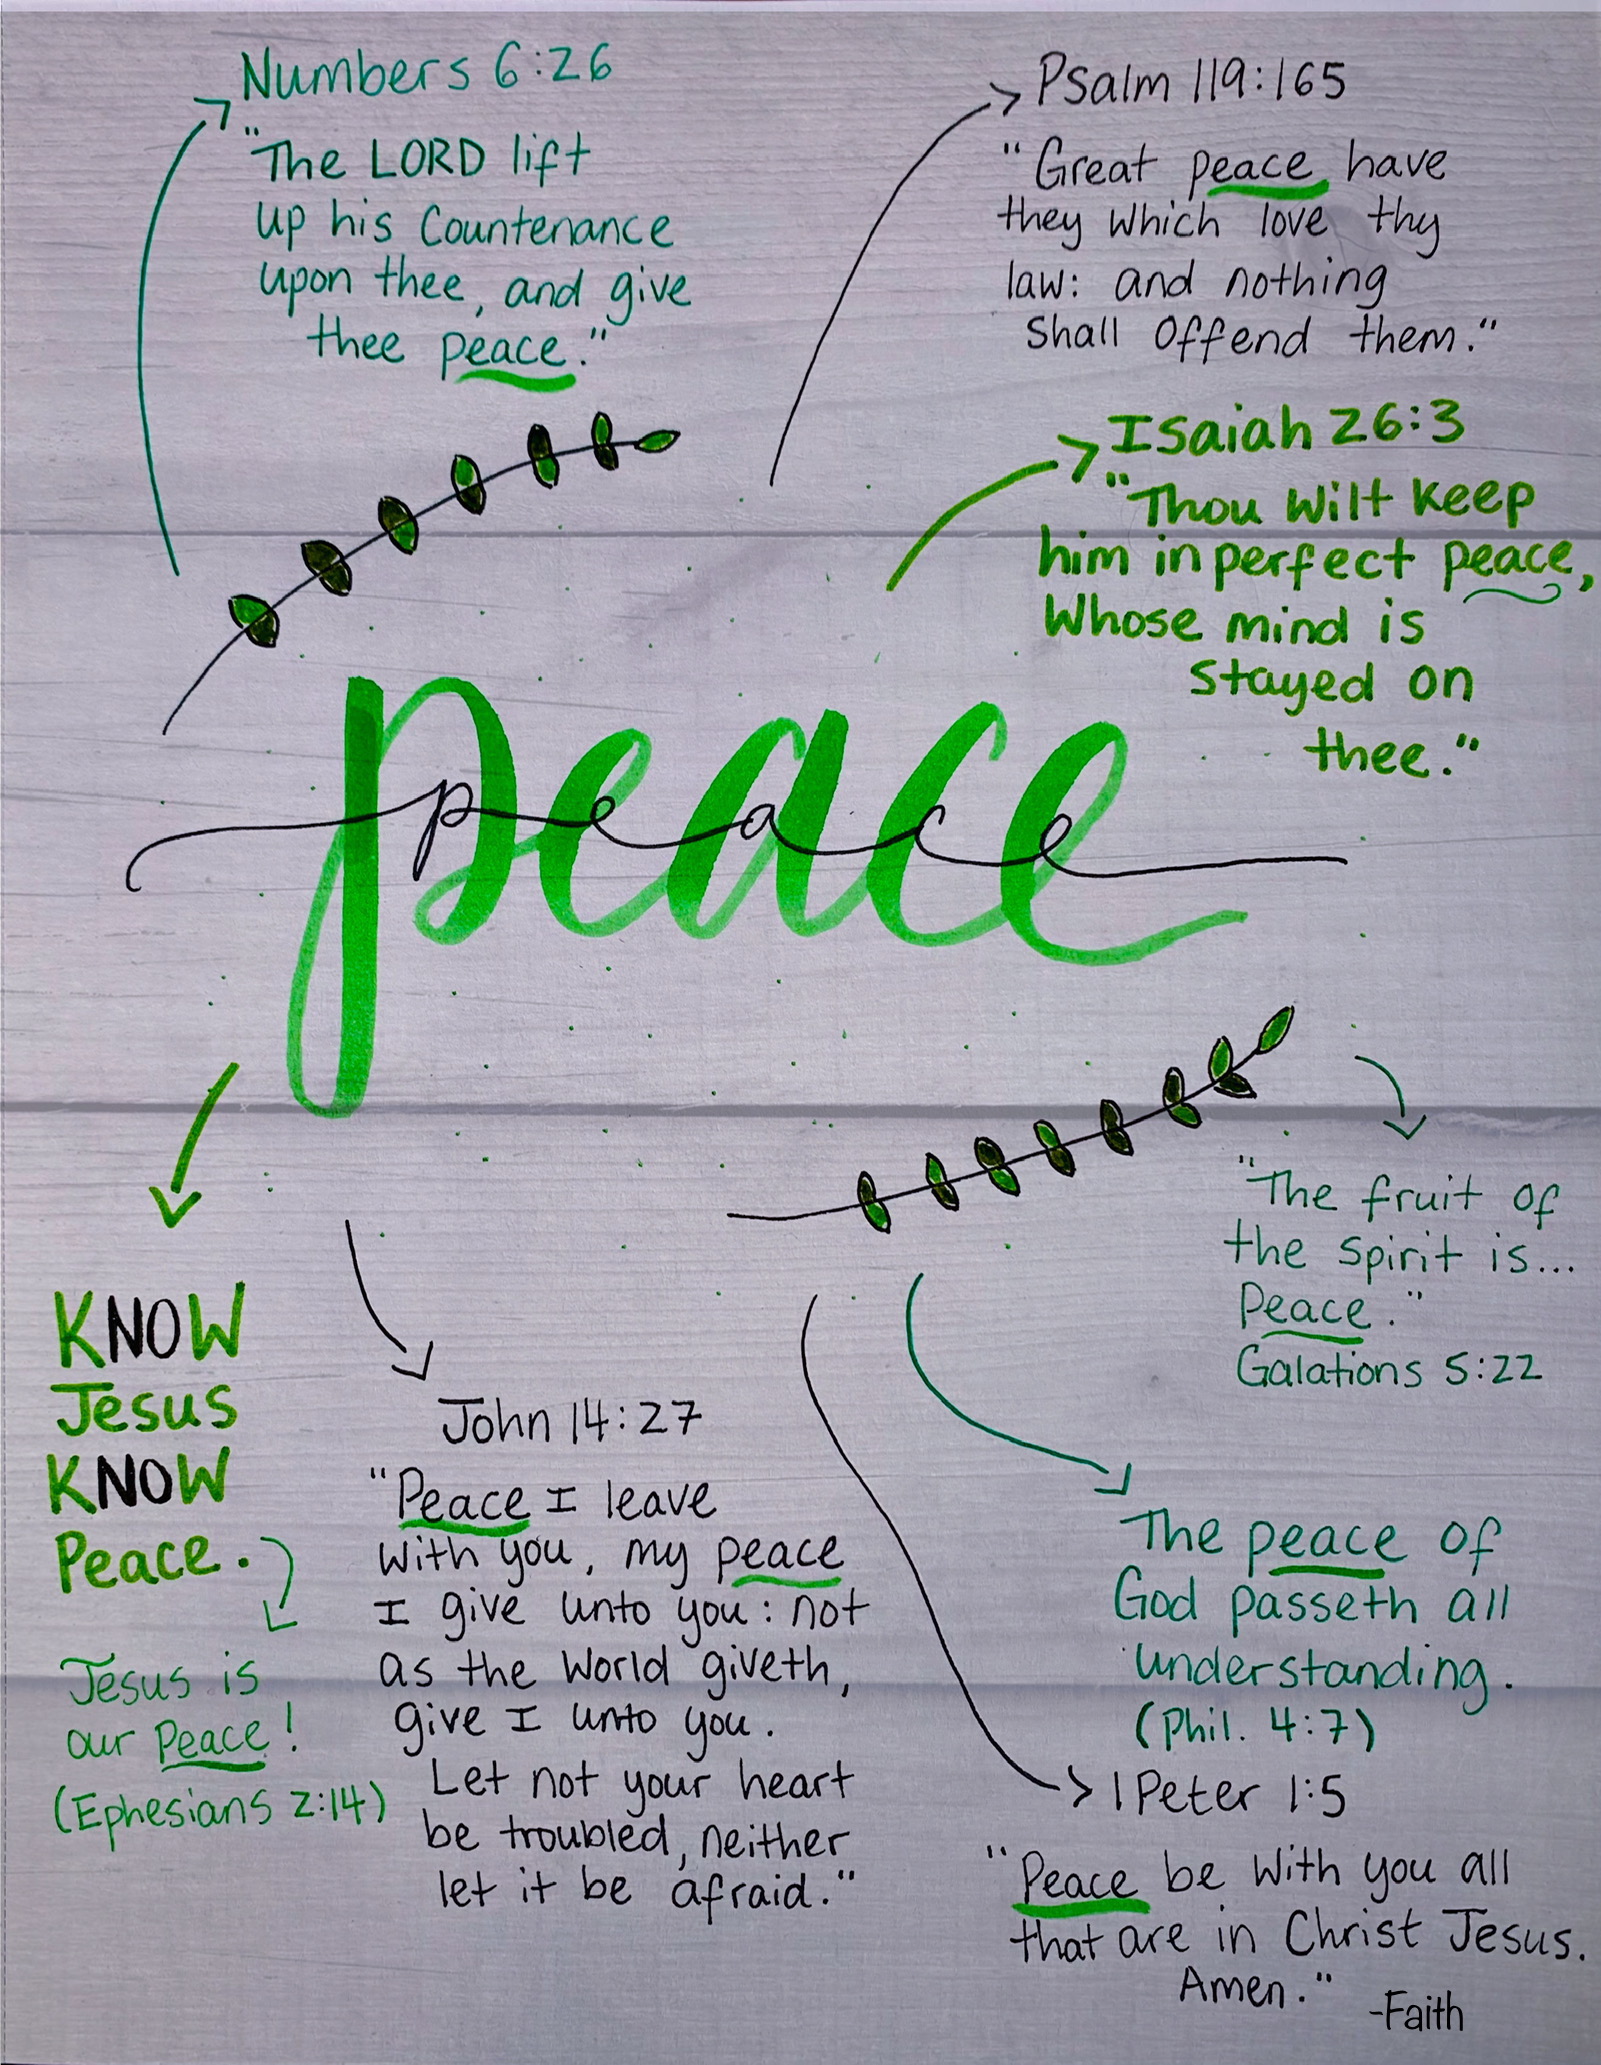 Numbers 6:26
"The LORD lift
up his Countenance
upon thee, and give
thee peace."
Psalm 119:165
"Great peace have
they which love thy
law: and nothing
Shall Offend them."
Isaiah 26:3
"Thou Wilt Keep
him in perfect peace,
Whose mind is
Stayed on
thee."
peace
peace
KNOW
Jesus
KNOW
Peace.
Jesus is
our Peace!
(Ephesians 2:14)
John 14:27
"Peace I leave
With you, my peace
I give unto you: not
as the World giveth,
give I unto you.
Let not your heart
be troubled, neither
let it be afraid."
"The fruit of
the Spirit is...
Peace."
Galations 5:22
The peace of
God passeth all
understanding.
(Phil. 4:7)
1 Peter 1:5
"Peace be With you all
that are in Christ Jesus.
Amen."
-Faith